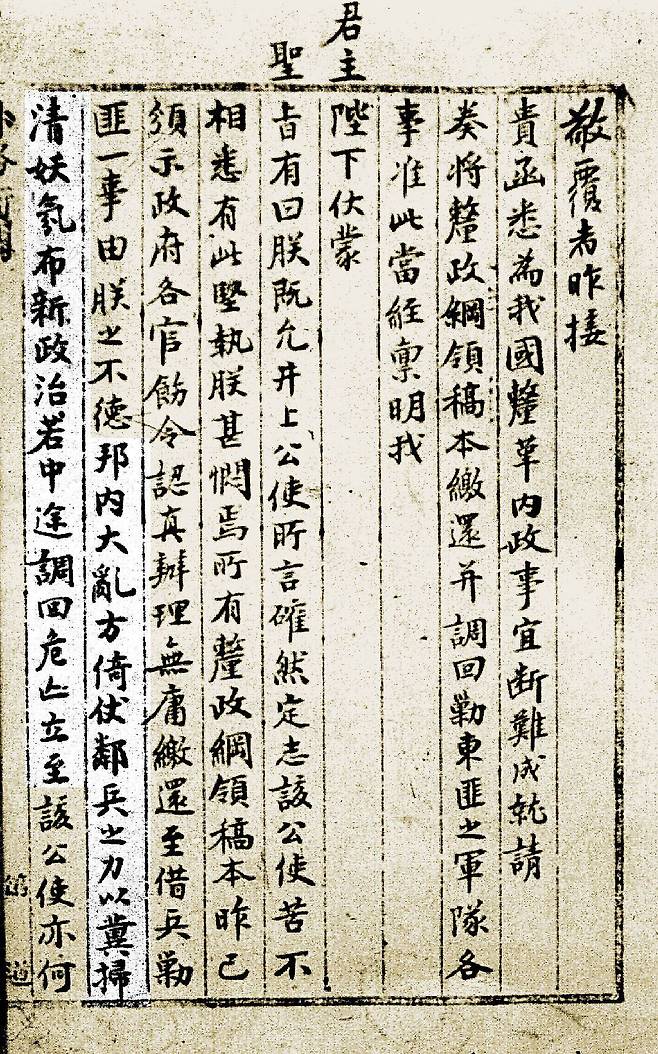 敬覆者昨接
貴函悉為我國釐革内政事宜断難成就請
奏將釐政綱領稿本繳還并調回勦東匪之軍隊各
事准此當經稟明我
君主陛下伏蒙
聖旨有曰朕既允井上公使所言確然定志該公使苦不
相悉有此堅執朕甚憫焉所有釐政綱領稿本昨已
頒示政府各官飭令認真辦理無庸繳還至借兵勦
匪一事由朕之不德邦内大亂方倚仗鄰兵之力以冀掃
清妖氛布新政治若中途調回危亡立至該公使亦何